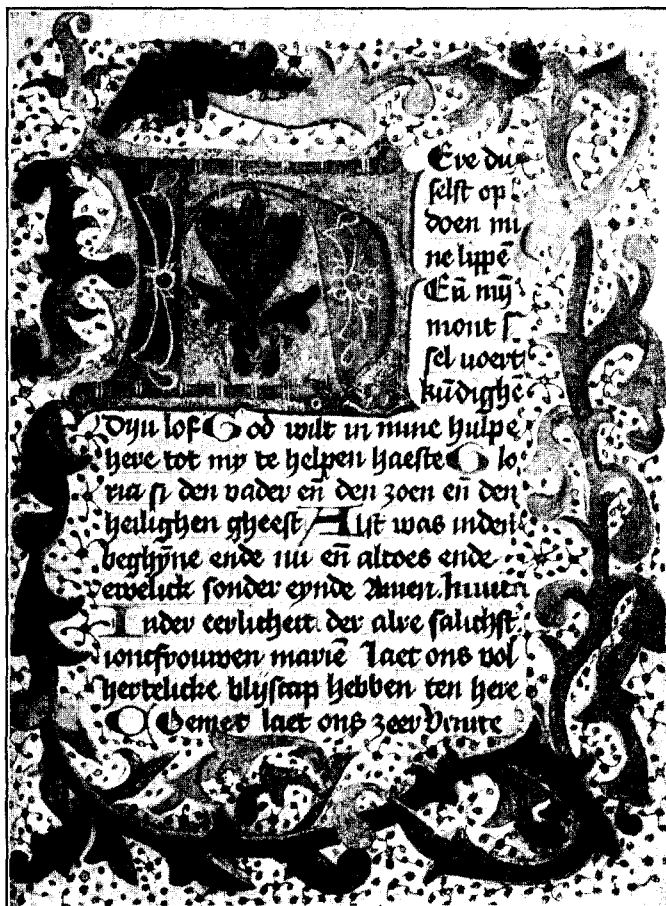 Ere du
selst op
doen mi
ne lippē
Eñ mij
mont s
sel voert
kūdighe
dijn lof God wilt in mine hulpe
here tot my te helpen haeste Glo
ria si den vader eñ den zoen eñ den
heilighen gheest Alst was inden
beghyne ende nu eñ altoes ende
ewelick sonder eynde Amen.
Inder eerlicheit der alre salichst
ioncfrouwen mariē laet ons vol
hertelicke blijscap hebben ten here
laet ons zeer